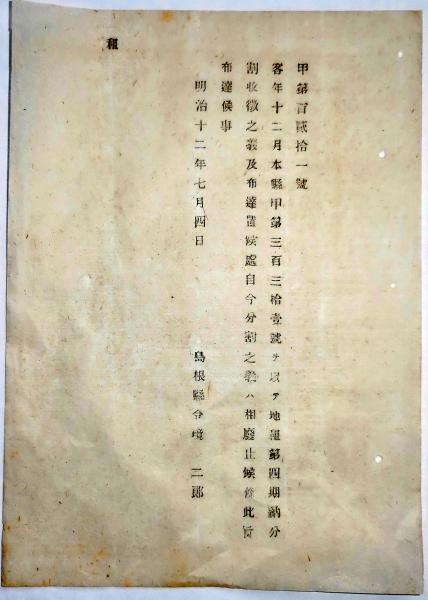 甲第百貳拾一號
客年十二月本縣甲第三百三拾壹號ヲ以テ地租第四期納分
割收徵之義及布達置候處自今分割之義ハ相廢止候條此旨
布達候事
明治十二年七月四日
島根縣令境 二郎
租